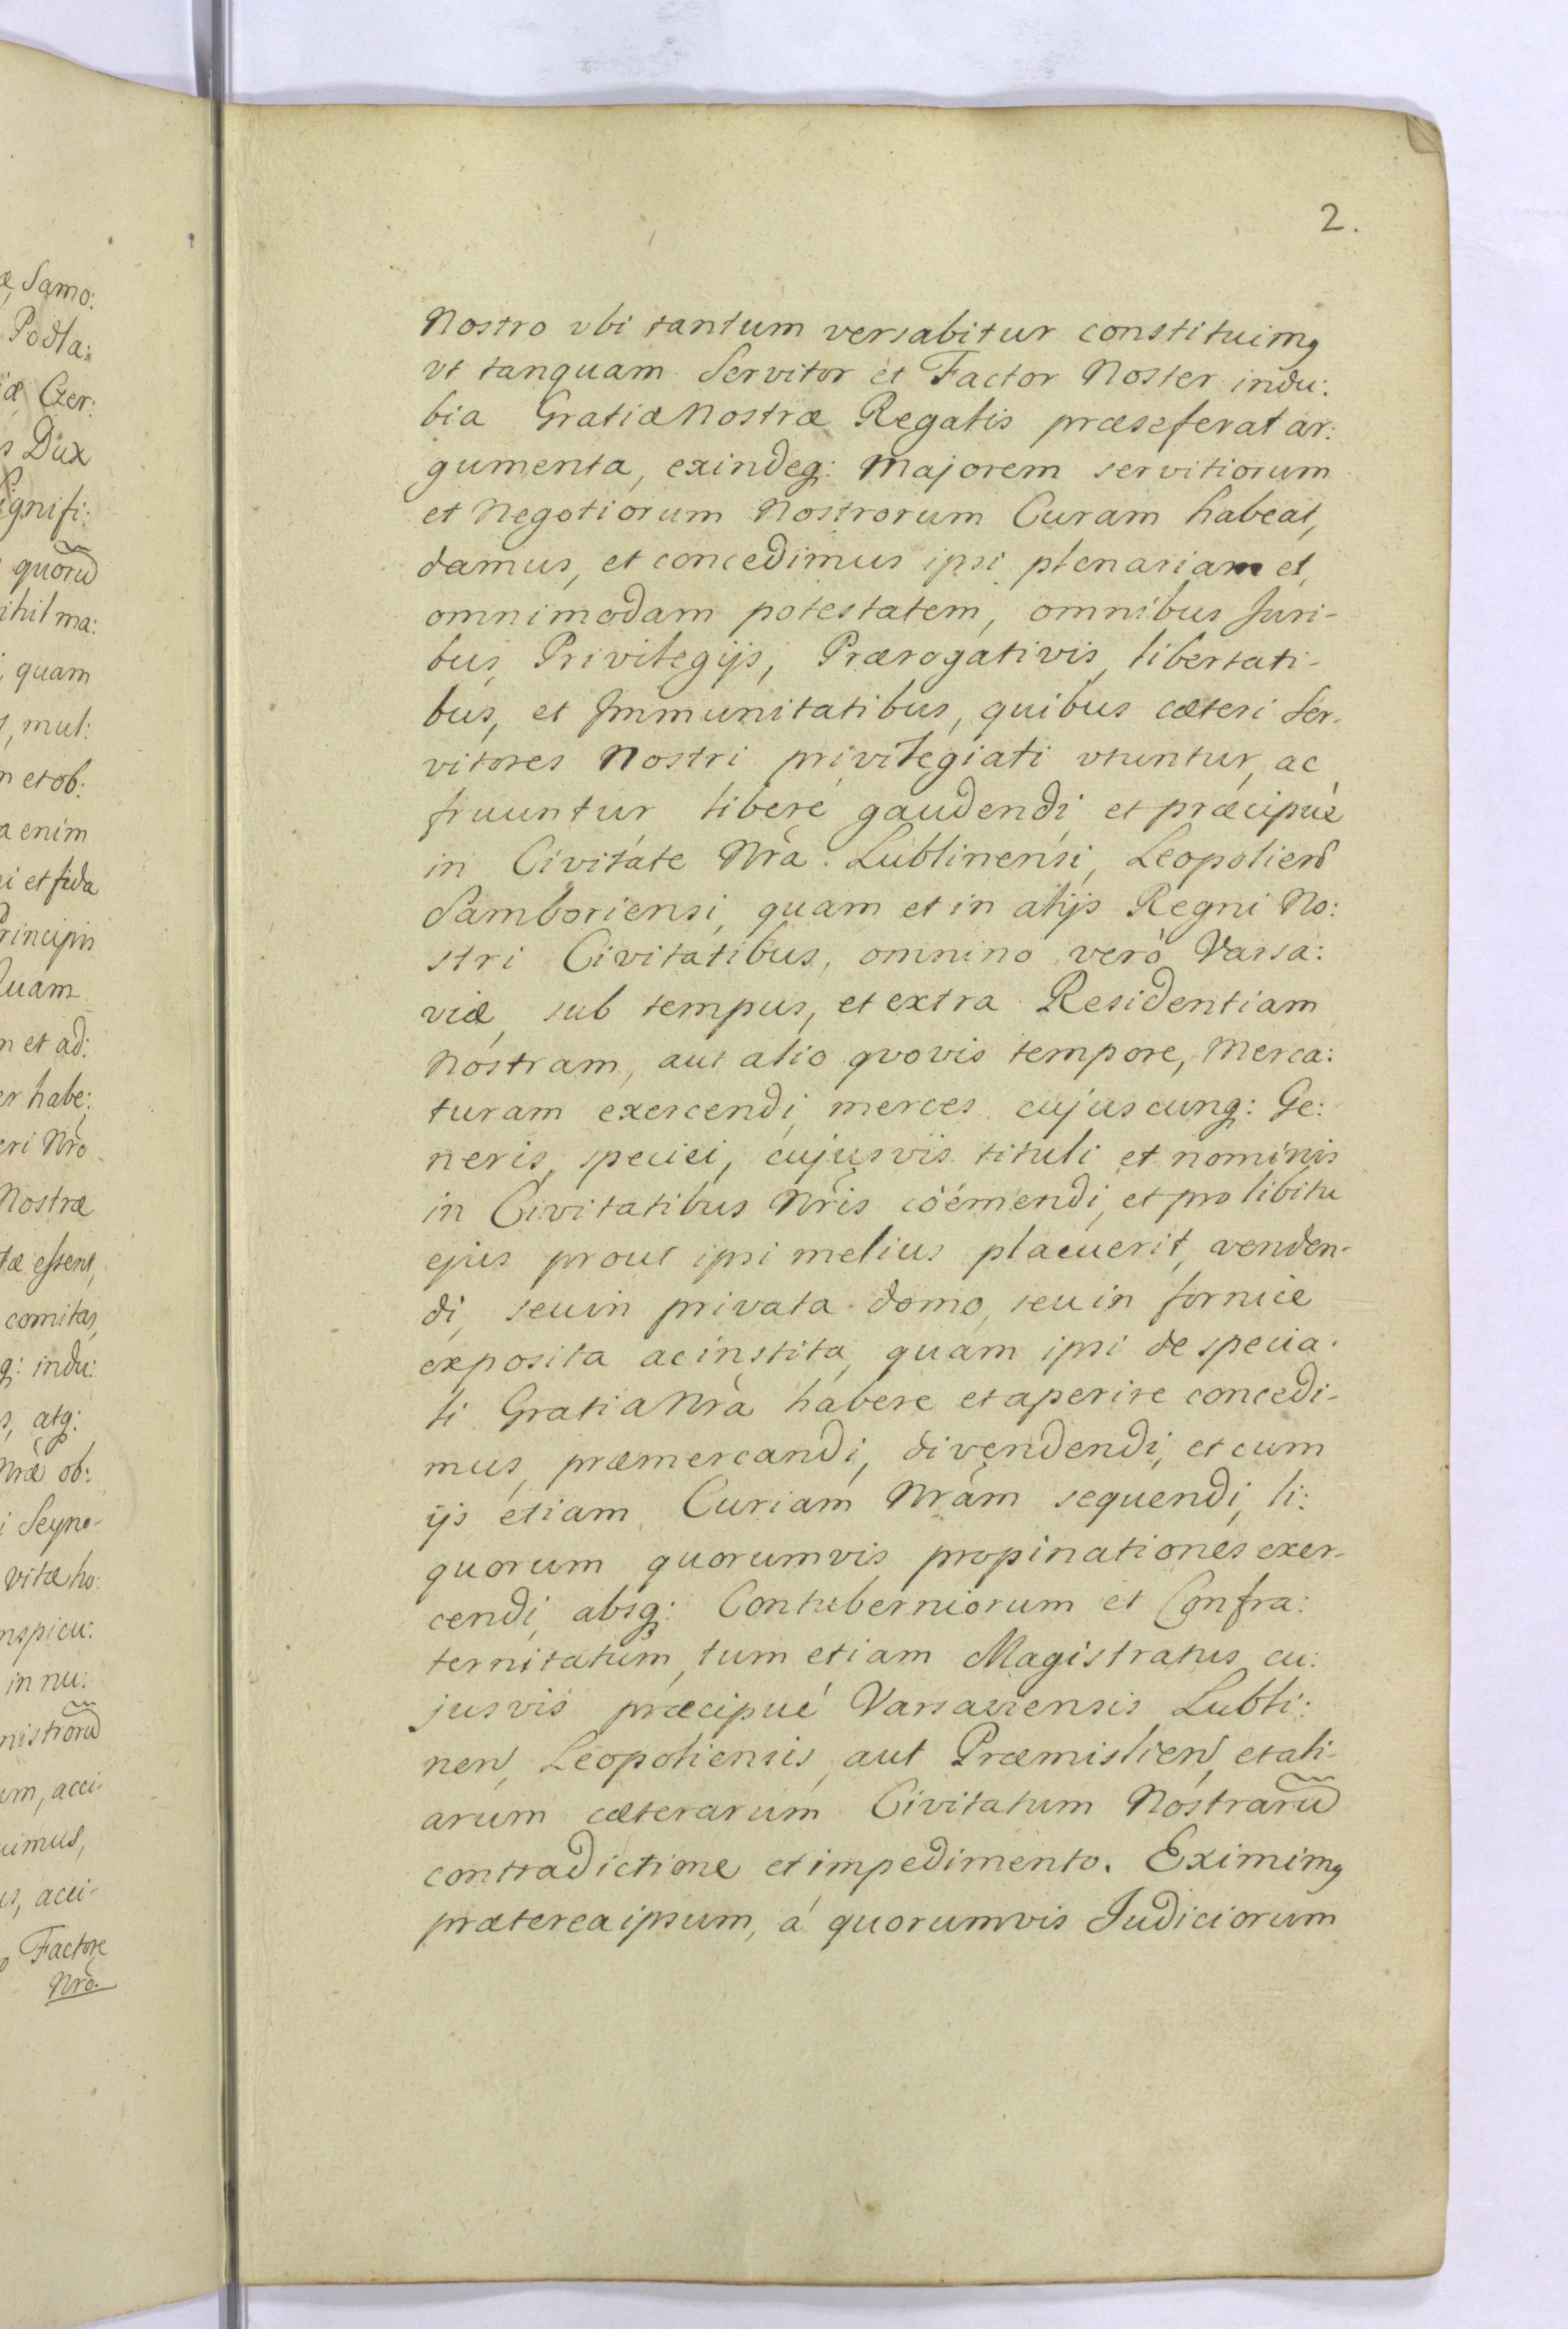 2.
Nostro vbi tantum versabitur constituimꝯ
vt tanquam Servitor et Factor Noster indu:
bia Gratiæ Nostræ Regalis præseferat ar:
gumenta, exindeq: Majorem servitiorum
et Negotiorum Nostrorum Curam habeat,
damus, et concedimus ipsi plenariam et
omnimodam potestatem, omnibus Juri-
bus, Privilegijs, Prærogativis, libertati-
bus, et Jmmunitatibus, quibus cæteri Ser-
vitores Nostri privilegiati vtuntur, ac
fruuntur liberé gaudendi, et præcipúe
in Civitate Nr̃a Lublinensi, Leopolien̄
Samboriensi, quam et in alijs Regni No:
stri Civitatibus, omnino verò Varsa:
viæ, sub tempus, et extra Residentiam
Nostram, aut alio qvovis tempore, Merca:
turam exercendi, merces cujuscunq: Ge:
neris, speciei, cujusvis tituli et nominis
in Civitatibus Nr̃is cöémendi, et pro libitu
ejus prout ipsi melius placuerit, venden-
di, seu in privata domo, seu in fornice
exposita ac instita, quam ipsi de specia-
li Gratia Nr̃a habere et aperire concedi-
mus, præmercandi, divendendi, et cum
ijs etiam Curiam Nr̃am sequendi, li:
quorum quorumvis propinationes exer-
cendi, absq: Contuberniorum et Confra:
ternitatum, tum etiam Magistratus cu:
jusvis præcipué Varsaviensis Lubli:
nen̄, Leopoliensis, aut Præmislien̄, et ali-
arum cæterarum Civitatum Nostrarũ
contradictione et impedimento. Eximimꝯ
præterea ipsum, á quorumvis Judiciorum
æ, Samo:
Podla:
iæ Czer:
s Dux
Signifi:
quorũ
ihil ma:
quam
, mul:
n et ob:
a enim
i et fida
Principis
Quam
n et ad:
er habe:
eri Nr̃o
Nostræ
tæ essent,
comitas,
q: indu:
s, atq:
Nr̃æ ob:
i Seyno-
vitæ ho:
nspicu:
in nu:
nistrorũ
um, acci-
uimus,
us, acci-
Factore
Nr̃o.